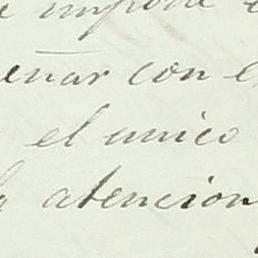 impone
eñar con e
el unico
la atencion